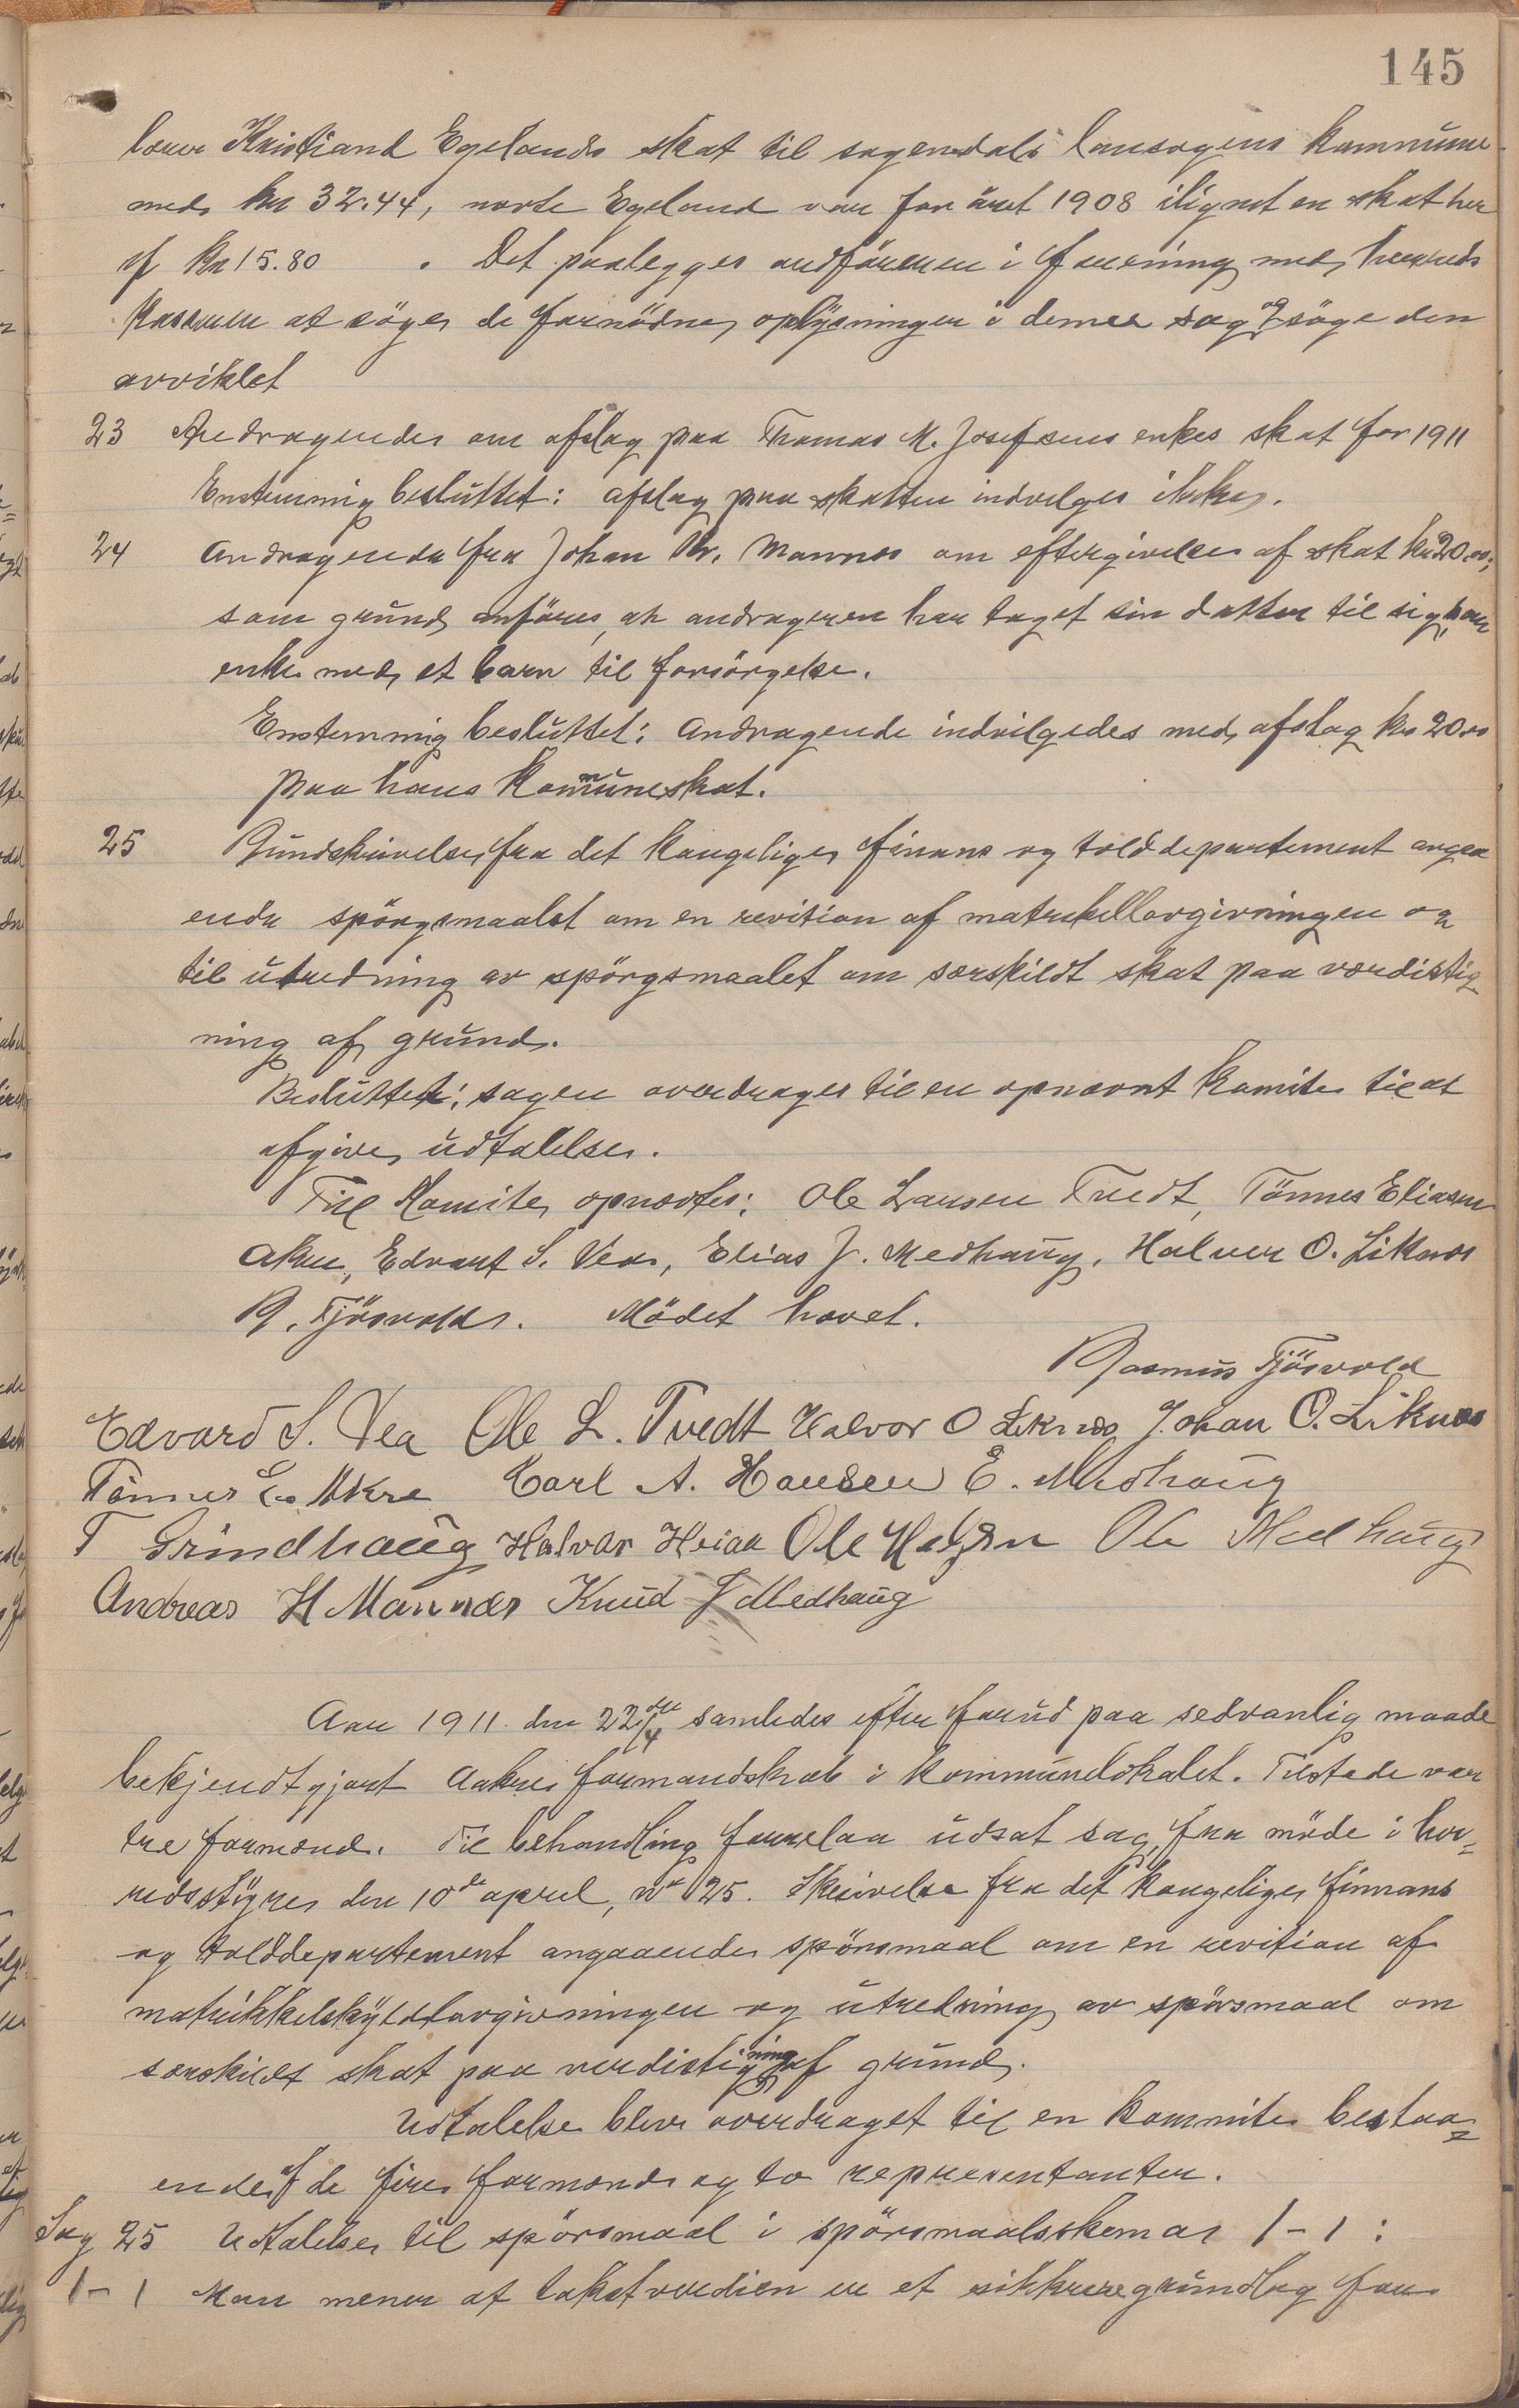 145
lærer Kristiand Egelands skat til sogendals landsogens kommune
med kr 32.44, norte Egeland var for året 1908 ilignet en skat her
af kr 15.80 . Det paalegges ordföreren i forening med herreds
kasseren at söge de fornödne oplysninger i denne sag og söge den
avviklet
23 Andragende om afslag paa Thomas M. Josefsens enkes skat for 1911
Enstemmig besluttet: afslag paa skatten indvilges ikke.
24 Andragende fra Johan Kr. Mannes om eftergivelse af skat kr 20.00,
som grund anföres, at andrageren har taget sin datter til sig, som
enke med et barn til forsörgelse.
Enstemmig besluttet: andragende indvilgedes med afslag kr 20.00
paa hans Kommuneskat.
25 Rundskrivelse fra det kongelige finans og tolddepartement angaa
ende spörgsmaalet om en revition af matrikellovgivningen og
til utredning av spörgsmaalet om særskildt skat paa værdistig
ning af grund.
Besluttet: sagen overdrages til en opnævnt komite til at
afgive udtalelse.
Til Komite opnævtes: Ole Larsen Tvedt, Tönnes Eliasen
Akre, Edvart S. Vea, Elias J. Medhaug, Halvor O. Liknes
R. Tjösvold. Mödet hævet.
Rasmus Tjösvold
Edvard S. Vea Ole L. Tvedt Halvor O Liknes Johan O. Liknes
Tönnes E. Akre Karl A. Hansen E. Medhaug
T Grindhaug Halvor Heiaa Ole Helgsen Ole Medhaug
Andreas H Mannes Knud J Medhaug
Aar 1911 den 22de/4 samledes efter forud paa sedvanlig maade
bekjendtgjort Aakre formandskab i kommunelokalet. Tilstede var
tre formænd. Til behandling forelaa udsat sag fra möde i her=
redsstyre den 10de april, nr 25. Skrivelse fra det kongelige finnans
og tolddepartement angaaende spörsmaal om en revition af
matrikkelskyldlovgivningen og utredning av spörsmaal om
særskildt skat paa verdistigning af grund.
Udtalelse blev overdraget til en kommite bestaa=
ende af de fire formænd og to representanter.
Sag 25 Udtalelse til spörsmaal i spörsmaalsskemar 1-1:
1-1 Man mener at takstverdien er et sikkrere grundlag for